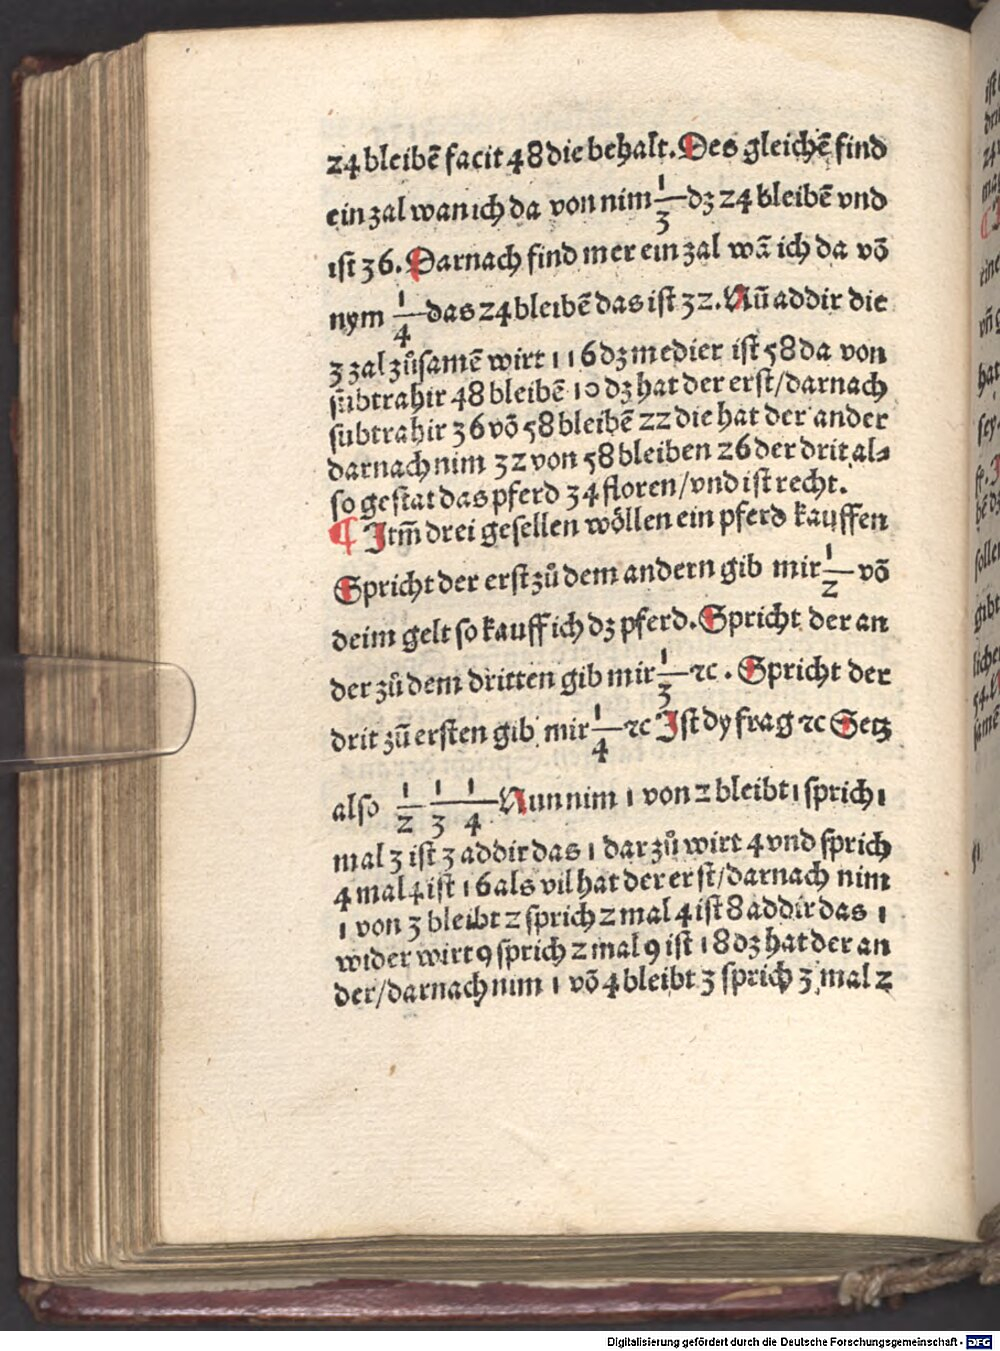 24 bleibẽ facit 48 die behalt. Des gleichẽ find
ein zal wan ich da von nim 1/3 dz 24 bleibẽ vnd
ist 36. Darnach find mer ein zal wã ich da võ
nym 1/4 das 24 bleibẽ das ist 32. Nũ addir die
3 zal zůsamẽ wirt 116 dz medier ist 58 da von
subtrahir 48 bleibẽ 10 dz hat der erst/darnach
subtrahir 36 võ 58 bleibẽ 22 die hat der ander
darnach nim 32 von 58 bleiben 26 der drit al⸗
so gestat das pferd 34 floren/vnd ist recht.
¶ Itm̃ drei gesellen wöllen ein pferd kauffen
Spricht der erst zů dem andern gib mir 1/2 võ
deim gelt so kauff ich dz pferd. Spricht der an
der zů dem dritten gib mir 1/3 ⁊c. Spricht der
drit zů ersten gib mir 1/4 ⁊c Ist dy frag ⁊c Setz
also 1/2 1/3 1/4 Nun nim 1 von 2 bleibt 1 sprich 1
mal 3 ist 3 addir das 1 dar zů wirt 4 vnd sprich
4 mal 4 ist 16 als vil hat der erst/darnach nim
1 von 3 bleibt 2 sprich 2 mal 4 ist 8 addir das 1
wider wirt 9 sprich 2 mal 9 ist 18 dz hat der an
der/darnach nim 1 võ 4 bleibt 3 sprich 3 mal 2
Digitalisierung gefördert durch die Deutsche Forschungsgemeinschaft - DFG